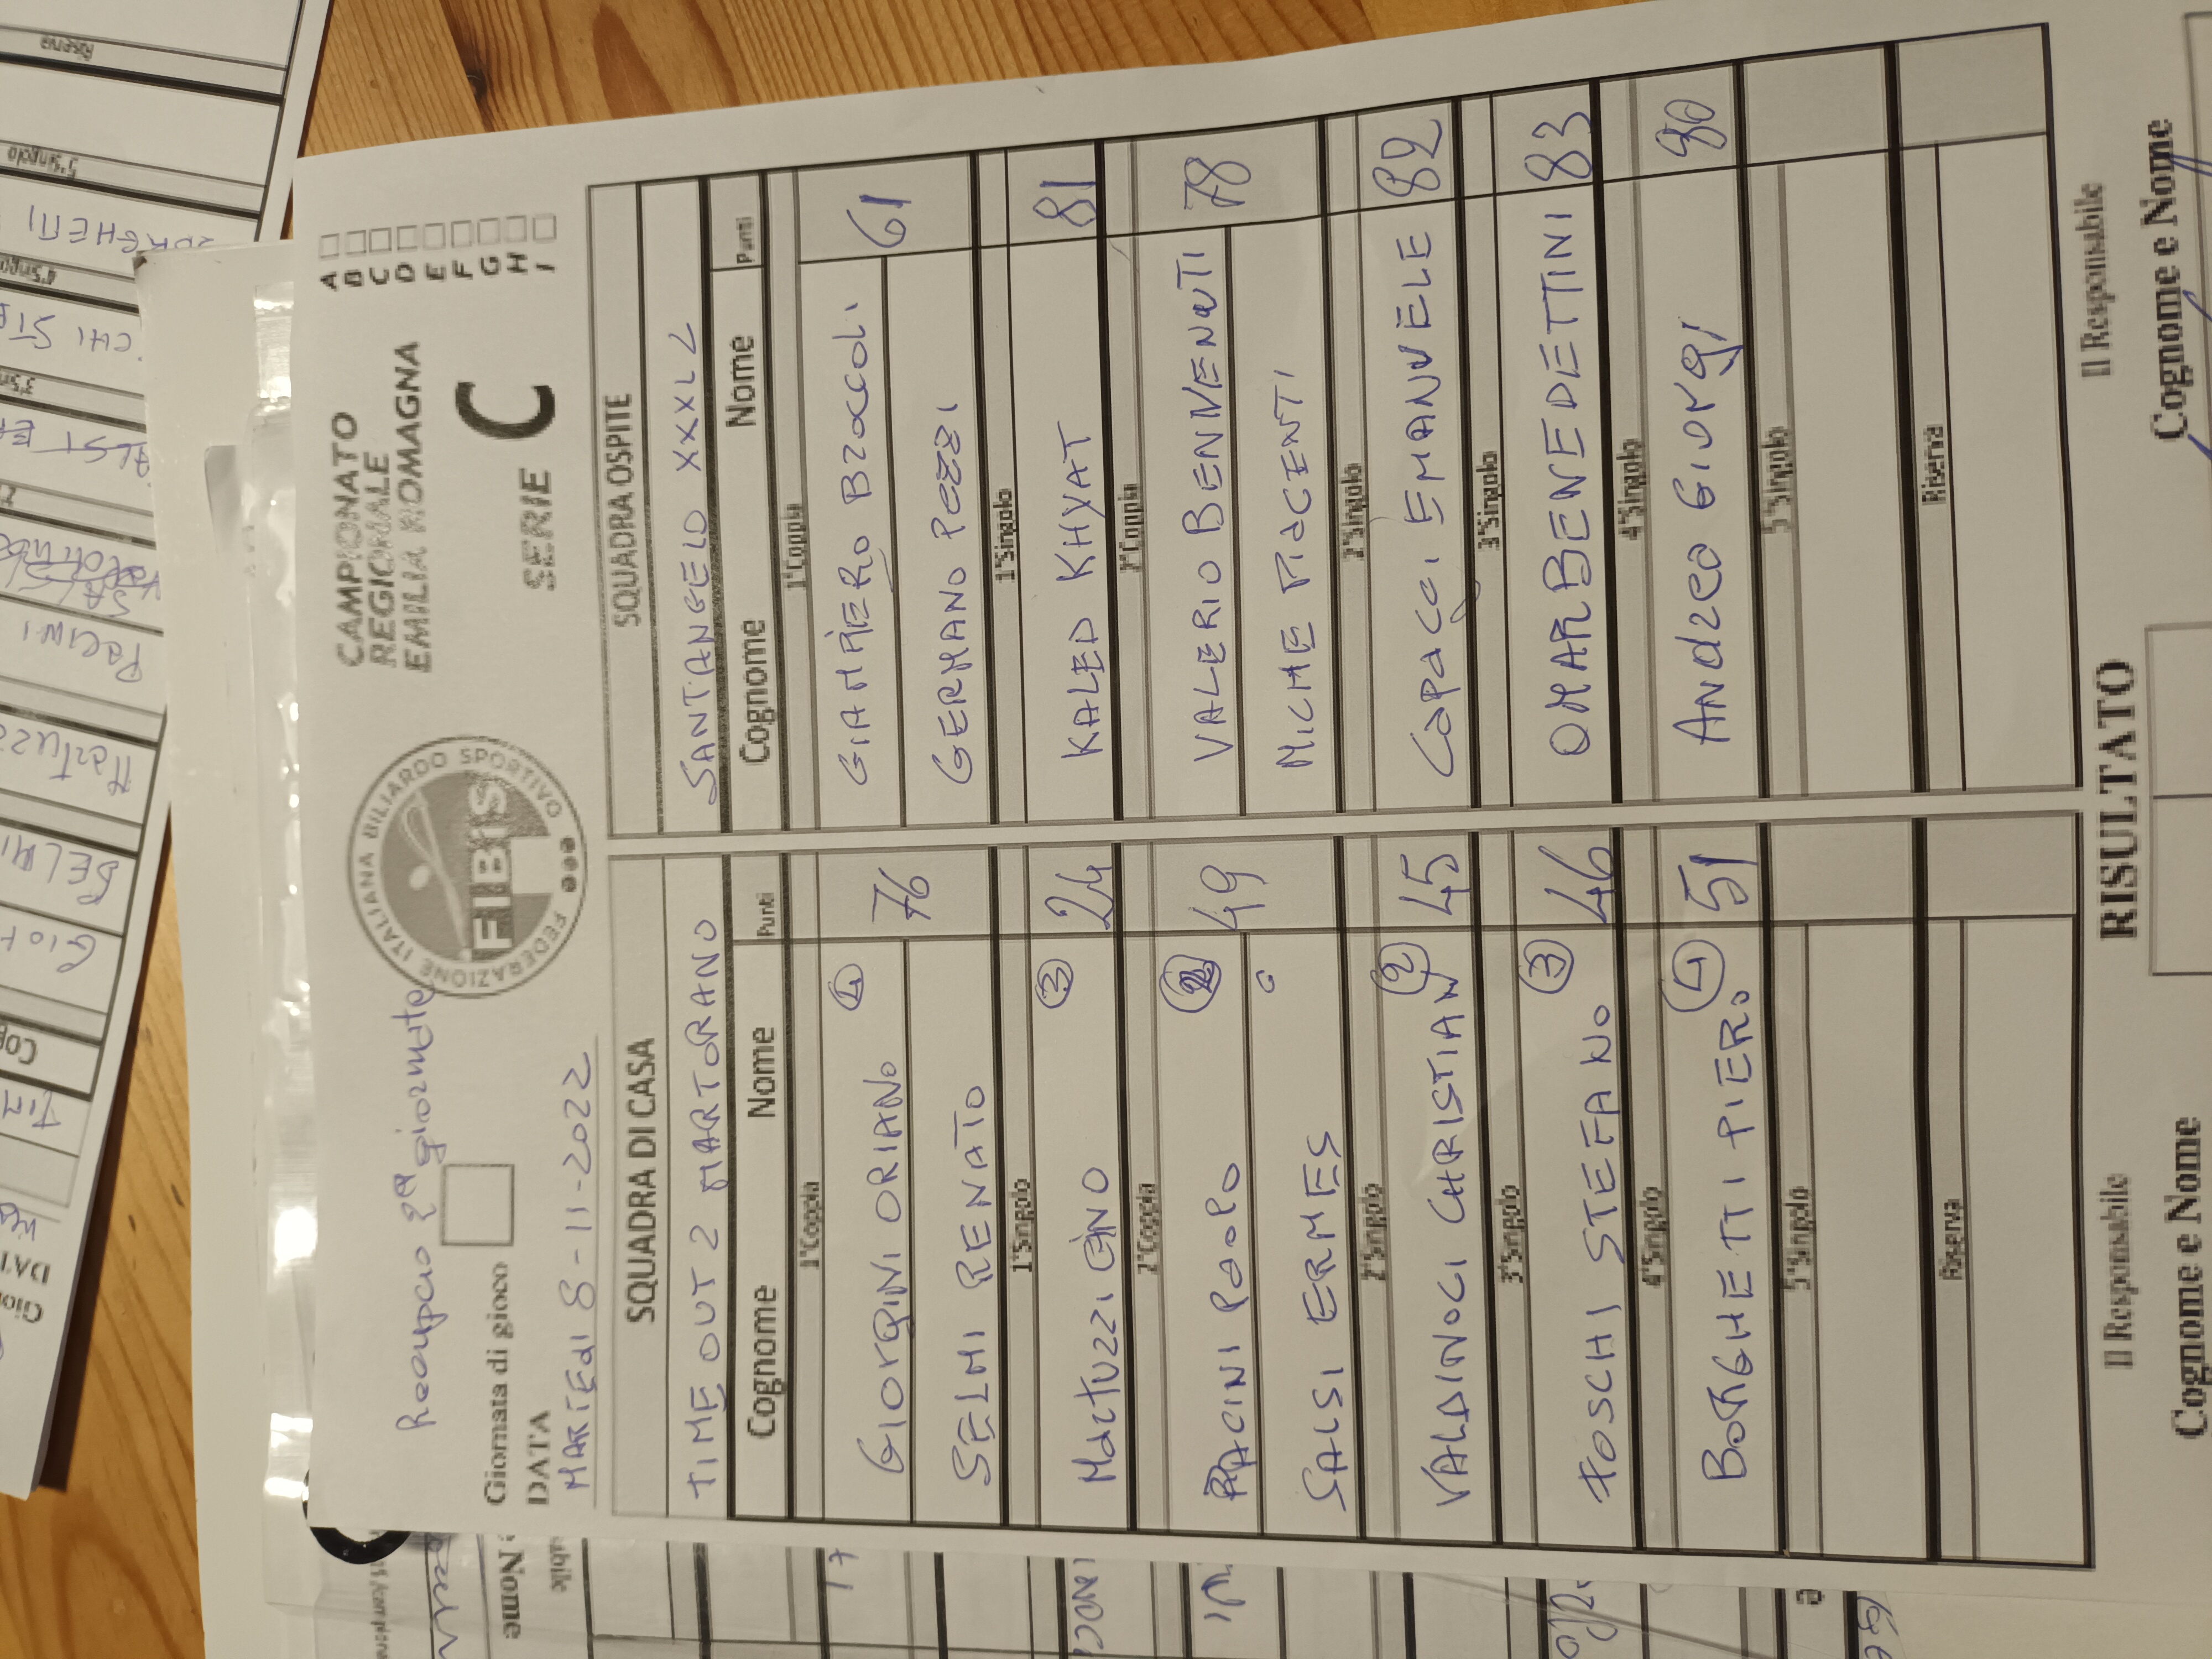 Recupero 2ª giornata
Giornata di gioco
DATA
MARTEdi 8-11-2022
FEDERAZIONE ITALIANA BILIARDO SPORTIVO
FIBiS
CAMPIONATO
REGIONALE
EMILIA ROMAGNA
SERIE C
A
B
C
D
E
F
G
H
I
SQUADRA DI CASA
TIME OUT 2 MARTORANO
Cognome Nome Punti
1°Coppia
GIORGINI ORIANO 76
SELMI RENATO
1°Singolo
MartUZZI ENO 3 24
2°Coppia
PACINI PAOLO 49
SALSI ERMES
2°Singolo
VALDINOCI CHRISTIAN 2 45
3°Singolo
FOSCHI STEFANO 3 46
4°Singolo
BORGHETTI PIER. 51
5°Singolo
Riserva
SQUADRA OSPITE
SANTANGELO XXXL 2
Cognome Nome Punti
1°Coppia
GIAMPIERO 61
GERMANO Pezzi
1°Singolo
KALED KHYAT 81
2°Coppia
VALERIO BENVENUTI 78
MICHE PIACENTI
2°Singolo
Capacci EMANUELE 82
3°Singolo
OMAR BENEDETTINI 83
4°Singolo
ANdrea Giorgi 80
5°Singolo
Riserva
RISULTATO
Il Responsabile
Cognome e Nome
Il Responsabile
Cognome e Nome